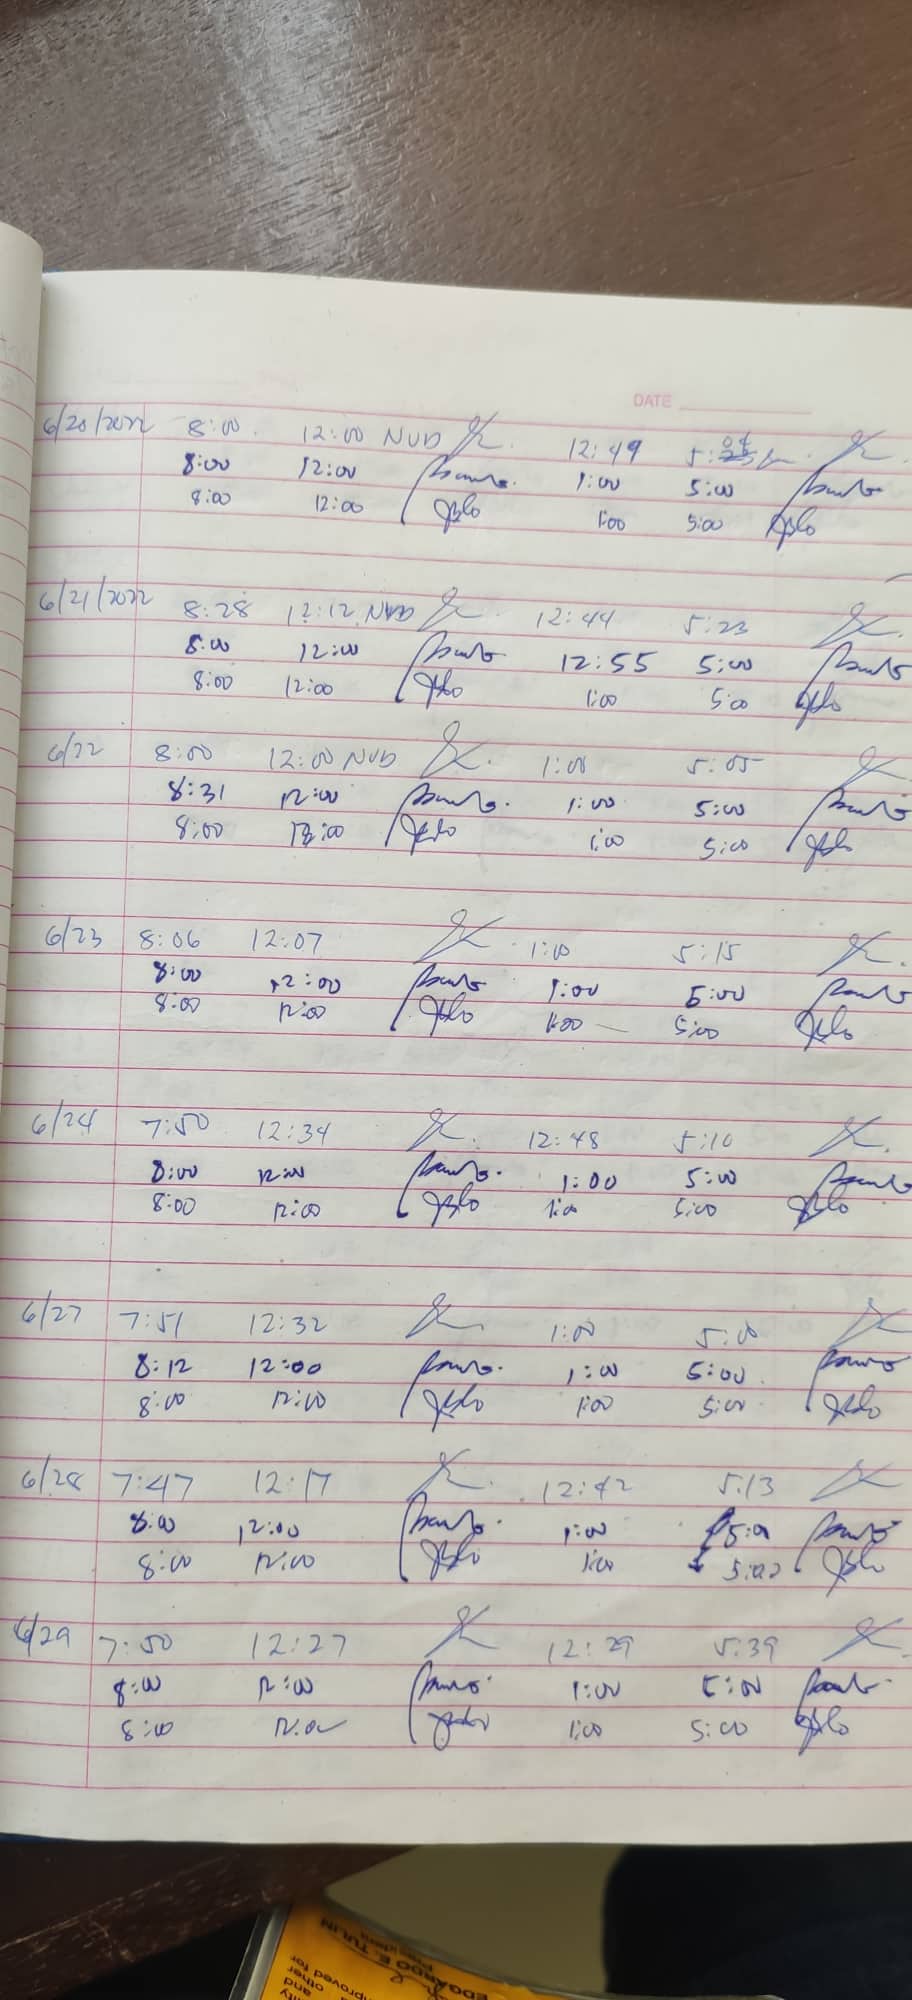 DATE
6/20/2022 8:00 12:00 NVD 12:49 5:
8:00 12:00 1:00 5:00
8:00 12:00 1:00 5:00
6/21/2022 8:28 12:12 NVD 12:44 5:23
8:00 12:00 12:55 5:00
8:00 12:00 1:00 5:00
6/22 8:00 12:00 NVD 1:00 5:05
8:31 12:00 1:00 5:00
8:00 1:00 5:00
6/23 8:06 12:07 1:10 5:15
8:00 12:00 1:00 5:00
8:00 12:00 1:00 5:00
6/24 7:50 12:34 12:48 5:10
8:00 12:00 1:00 5:00
8:00 12:00 1:00 5:00
6/27 7:51 12:32 1:00 5:10
8:12 12:00 1:00 5:00
8:00 12:00 1:00 5:00
6/28 7:47 12:17 12:42 5:13
8:00 12:00 1:00
8:00 12:00 1:00 5:00
6/29 7:50 12:27 12:29 5:39
8:00 12:00 1:00 5:00
8:00 12:00 1:00 5:00
EDGARDO E. TULIN
President
improved for
other
and